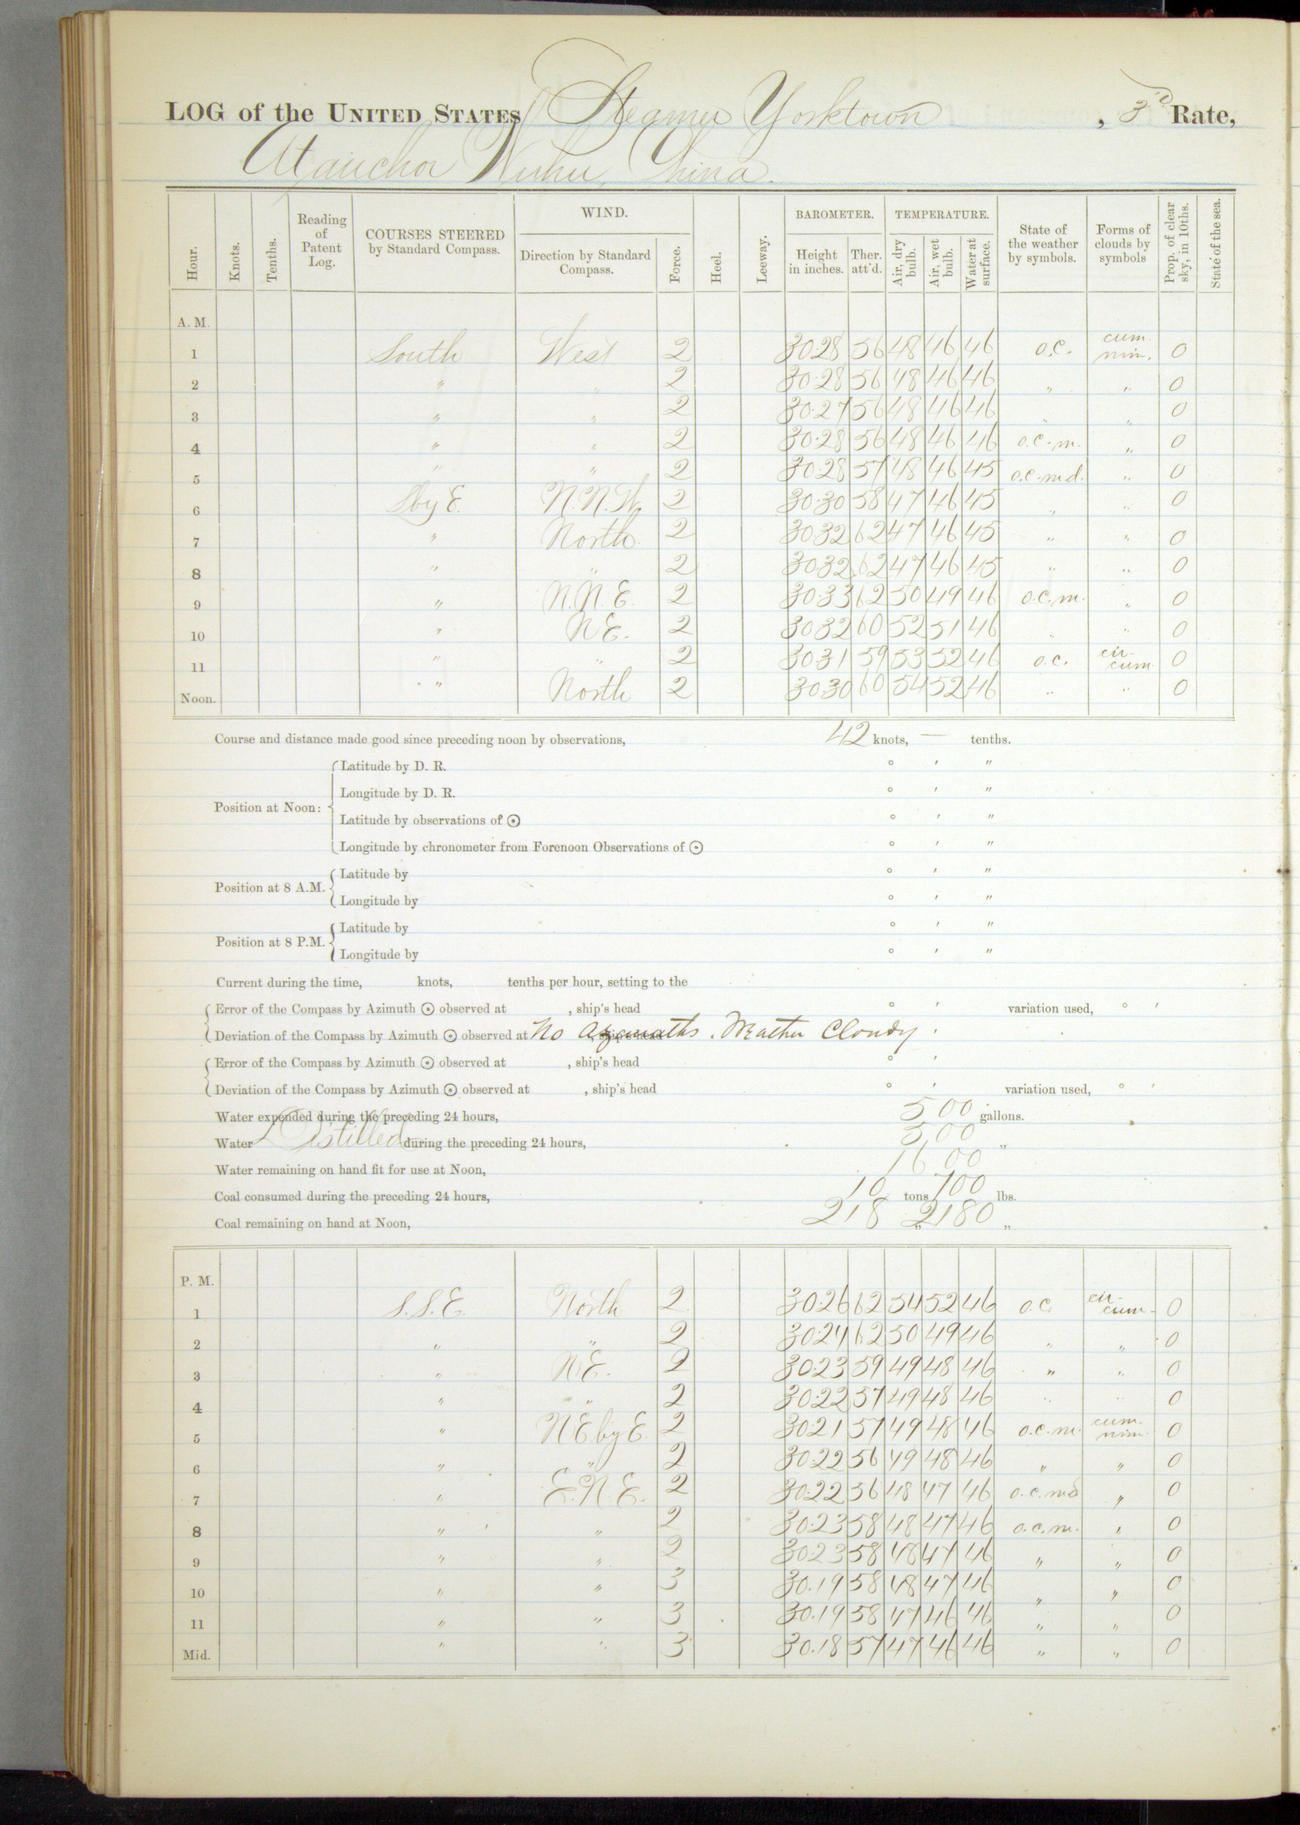 LOG of the UNITED STATES Steamer Yorktown, 3rd Rate,
At anchor Wuhu, China.
Hour. Knots. Tenths. Reading of Patent Log. COURSES STEERED by Standard Compass. WIND. Direction by Standard Compass. Force. Heel. Leeway. BAROMETER. Height in inches. Ther. att'd. TEMPERATURE. Air, dry bulb. Air, wet bulb. Water at surface. State of the weather by symbols. Forms of clouds by symbols Prop. of clear sky, in 10ths. State of the sea.
A. M.
1 South West 2 30.28 56 48 46 46 o.c. cum. nim. 0
2 " " 2 30.28 56 48 46 46 " " 0
3 " " 2 30.27 56 48 46 46 " " 0
4 " " 2 30.28 56 48 46 46 o.c.m. " 0
5 " " 2 30.28 57 48 46 45 o.c.m.d. " 0
6 S by E. N.N.W. 2 30.30 58 47 46 45 " " 0
7 " North 2 30.32 62 47 46 45 " " 0
8 " " 2 30.32 62 47 46 45 " " 0
9 " N.N.E. 2 30.33 62 50 49 46 o.c.m. " 0
10 " N.E. 2 30.32 60 52 51 46 " " 0
11 " " 2 30.31 59 53 52 46 o.c. cir.-cum. 0
Noon. " North 2 30.30 60 54 52 46 " " 0
Course and distance made good since preceding noon by observations, 42 knots, — tenths.
Position at Noon: Latitude by D. R. ° ′ ″
Longitude by D. R. ° ′ ″
Latitude by observations of ☉ ° ′ ″
Longitude by chronometer from Forenoon Observations of ☉ ° ′ ″
Position at 8 A.M. Latitude by ° ′ ″
Longitude by ° ′ ″
Position at 8 P.M. Latitude by ° ′ ″
Longitude by ° ′ ″
Current during the time, knots, tenths per hour, setting to the
Error of the Compass by Azimuth ☉ observed at , ship's head ° ′ variation used, ° ′
Deviation of the Compass by Azimuth ☉ observed at No Azimuths. Weather Cloudy ′
Error of the Compass by Azimuth ☉ observed at , ship's head ° ′
Deviation of the Compass by Azimuth ☉ observed at , ship's head ° ′ variation used, ° ′
Water expended during the preceding 24 hours, 500 gallons.
Water Distilled during the preceding 24 hours, 500 "
Water remaining on hand fit for use at Noon, 1600
Coal consumed during the preceding 24 hours, 10 tons 700 lbs.
Coal remaining on hand at Noon, 218 " 2180 "
P. M.
1 S.S.E. North 2 30.26 62 54 52 46 o.c. cir.-cum. 0
2 " " 2 30.24 62 50 49 46 " " 0
3 " N.E. 2 30.23 59 49 48 46 " " 0
4 " " 2 30.22 57 49 48 46 " " 0
5 " N.E. by E. 2 30.21 57 49 48 46 o.c.m. cum. nim. 0
6 " " 2 30.22 56 49 48 46 " " 0
7 " E.N.E. 2 30.22 56 48 47 46 o.c.m.d " 0
8 " " 2 30.23 58 48 47 46 o.c.m. " 0
9 " " 2 30.23 58 48 47 46 " " 0
10 " " 3 30.19 58 48 47 46 " " 0
11 " " 3 30.19 58 47 46 46 " " 0
Mid. " " 3 30.18 57 47 46 46 " " 0